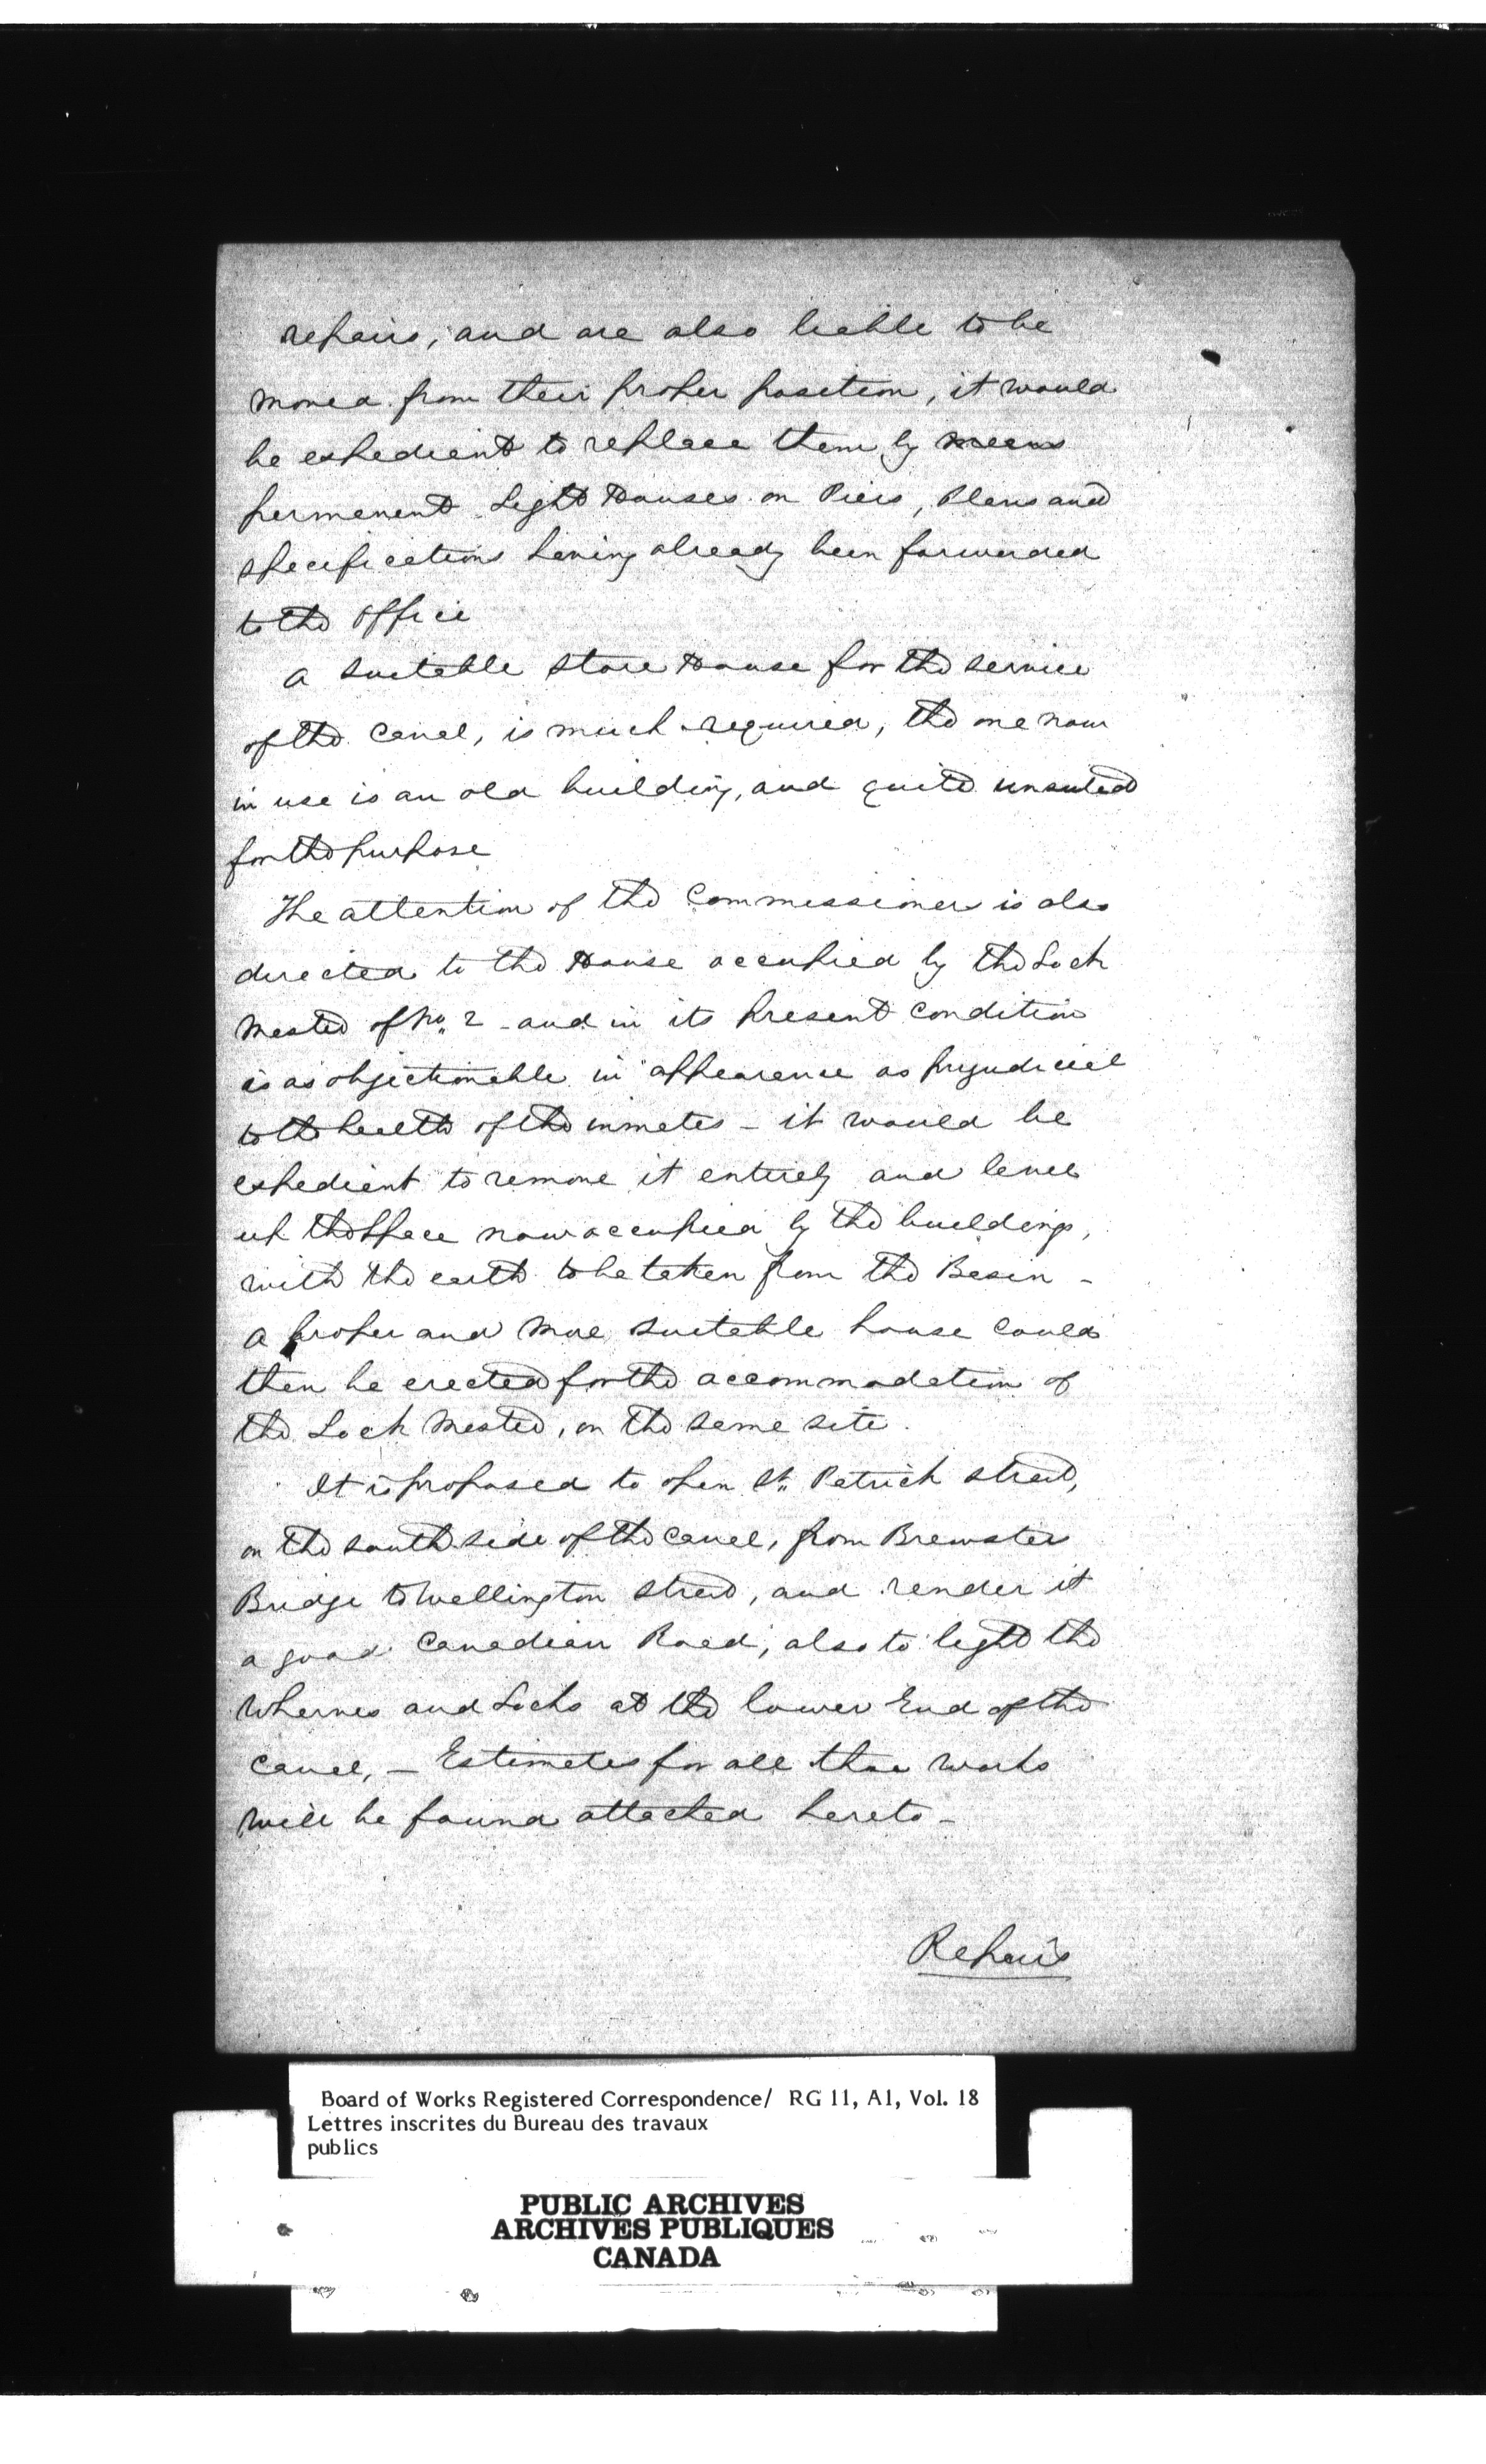 repairs, and are also liable to be
moved from their proper position, it would
be expedient to replace them by means
permanent Light Houses on Piers, Plans and
specifications having already been forwarded
to the office
A suitable Store House for the service
of the Canal, is much required, the one now
in use is an old building, and quite unsuited
for the purpose
The attention of the Commissioner is also
directed to the House occupied by the Lock
Master of No. 2 - and in its present condition
is as objectionable in appearance as prejudicial
to the health of the inmates - it would be
expedient to remove it entirely and level
up the space now occupied by the buildings,
with the earth to be taken from the Basin -
A proper and more suitable house could
then be erected for the accommodation of
the Lock Master, on the same site.
It is proposed to open St. Patrick street,
on the south side of the Canal, from Brewster
Bridge to Wellington street, and render it
a good Canadian Road, also to light the
Wharves and Locks at the lower End of the
Canal, - Estimates for all these works
will be found attached hereto -
Repairs
Board of Works Registered Correspondence/ RG 11, A1, Vol. 18
Lettres inscrites du Bureau des travaux
publics
PUBLIC ARCHIVES
ARCHIVES PUBLIQUES
CANADA